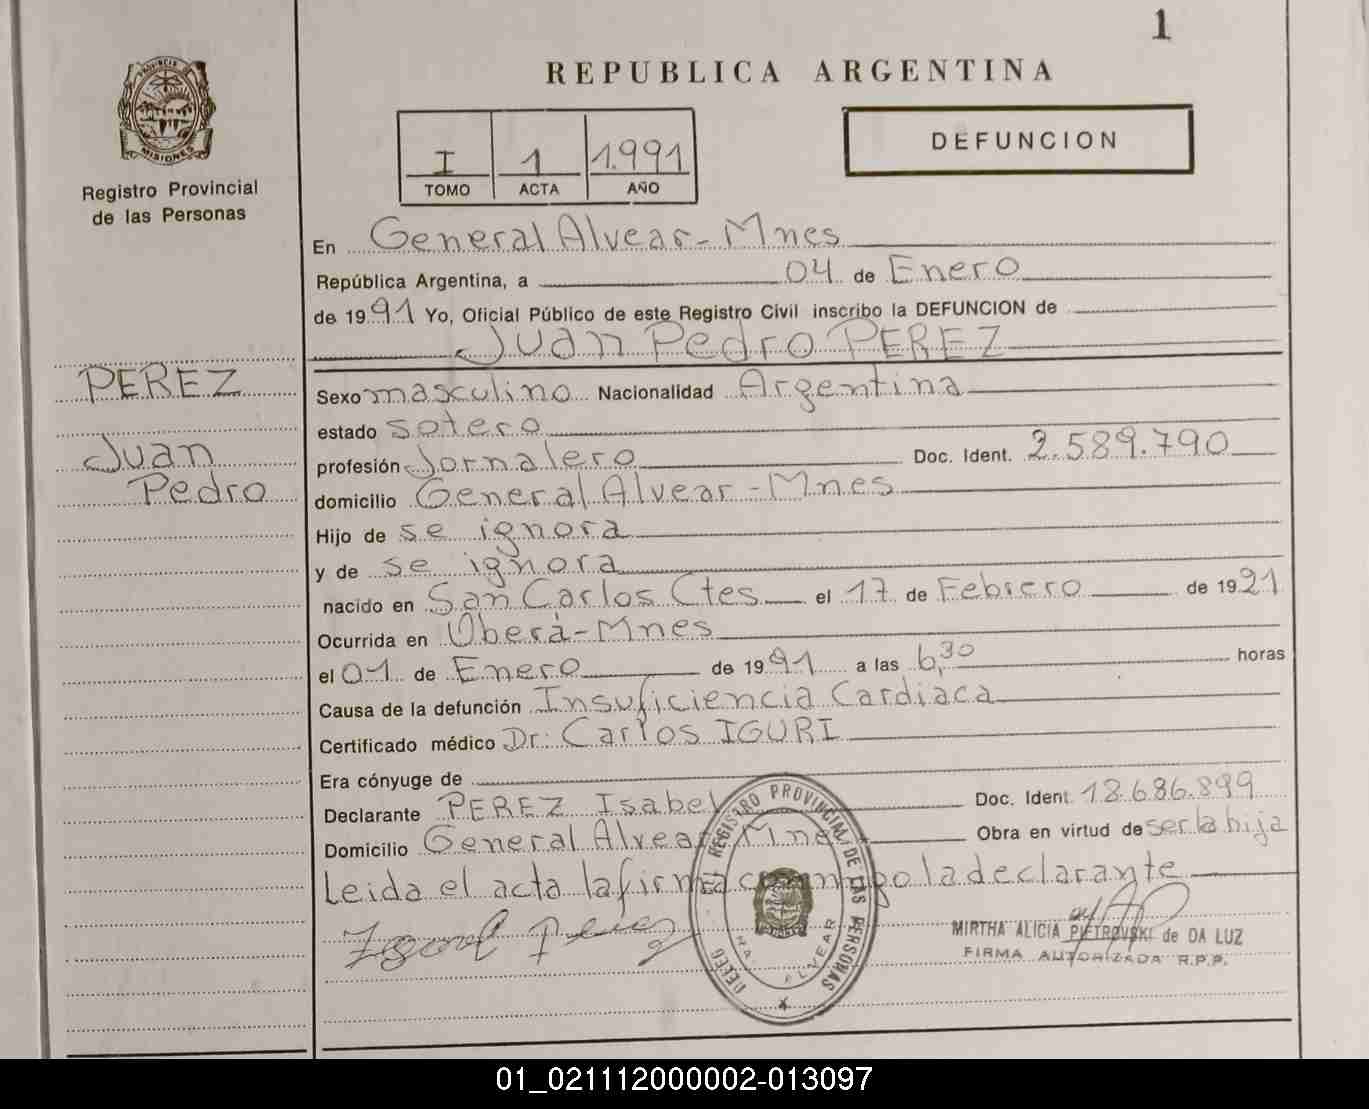 1
REPUBLICA ARGENTINA
PROVINCIA DE
MISIONES
Registro Provincial
de las Personas
I 1 1.991
TOMO ACTA AÑO
DEFUNCION
En General Alvear - Mnes
República Argentina, a 04 de Enero
de 1991 Yo, Oficial Público de este Registro Civil inscribo la DEFUNCION de
Juan Pedro PEREZ
PEREZ
Juan
Pedro
Sexo masculino Nacionalidad Argentina
estado sotero
profesión Jornalero Doc. Ident. 2.589.790
domicilio General Alvear - Mnes
Hijo de se ignora
y de se ignora
nacido en San Carlos Ctes el 17 de Febrero de 1921
Ocurrida en Oberá - Mnes
el 01 de Enero de 1991 a las 6,30 horas
Causa de la defunción Insuficiencia Cardiaca
Certificado médico Dr: Carlos IGURI
Era cónyuge de
Declarante PEREZ Isabel Doc. Ident. 18.686.899
Domicilio General Alvear Mnes Obra en virtud de ser la hija
Leida el acta la firma conmigo la declarante
Isabel Perez
DEL REGISTRO PROVINCIAL DE LAS PERSONAS
DELEG
ALVEAR
MIRTHA ALICIA PIETROVSKI de DA LUZ
FIRMA AUTORIZADA R.P.P.
01_021112000002-013097